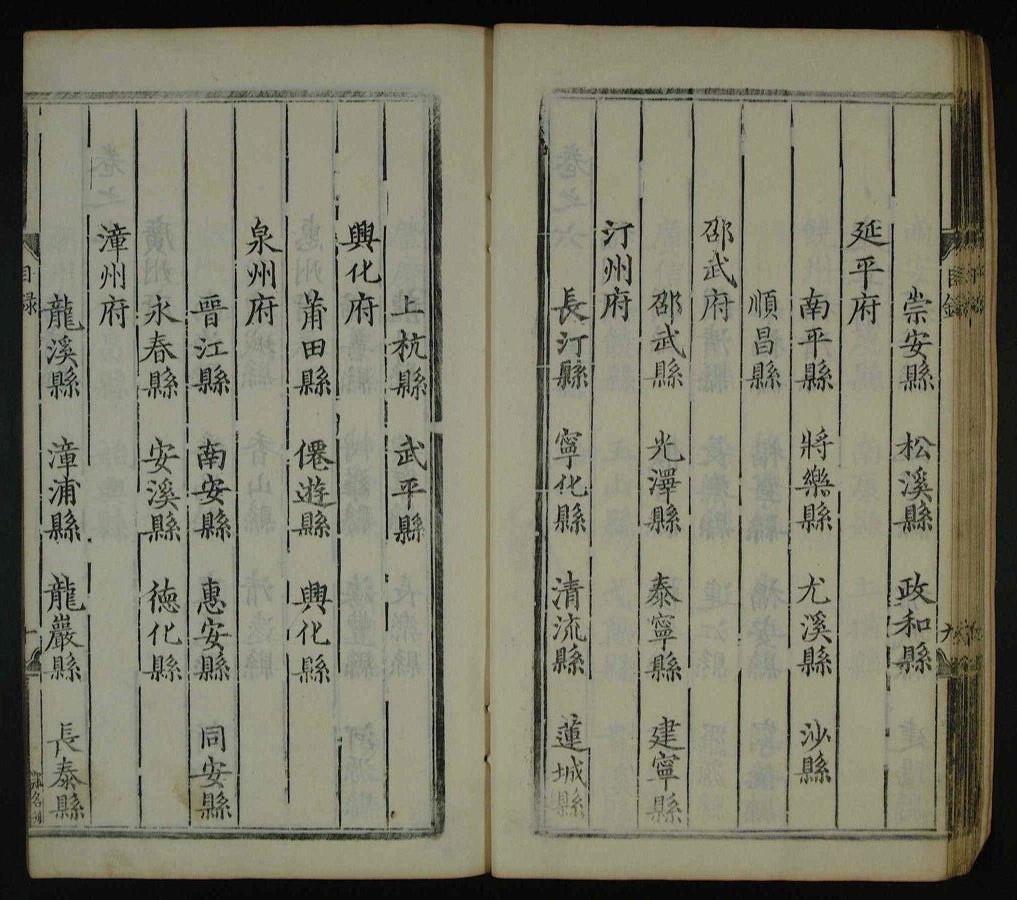 崇安縣 松溪縣 政和縣
延平府
南平縣 將樂縣 尤溪縣 沙縣
順昌縣
邵武府
邵武縣 光澤縣 泰寧縣 建寧縣
汀州府
長汀縣 寧化縣 清流縣 蓮城縣
上杭縣 武平縣
興化府
莆田縣 僊遊縣 興化縣
泉州府
晉江縣 南安縣 惠安縣 同安縣
永春縣 安溪縣 德化縣
漳州府
龍溪縣 漳浦縣 龍巖縣 長泰縣
目錄